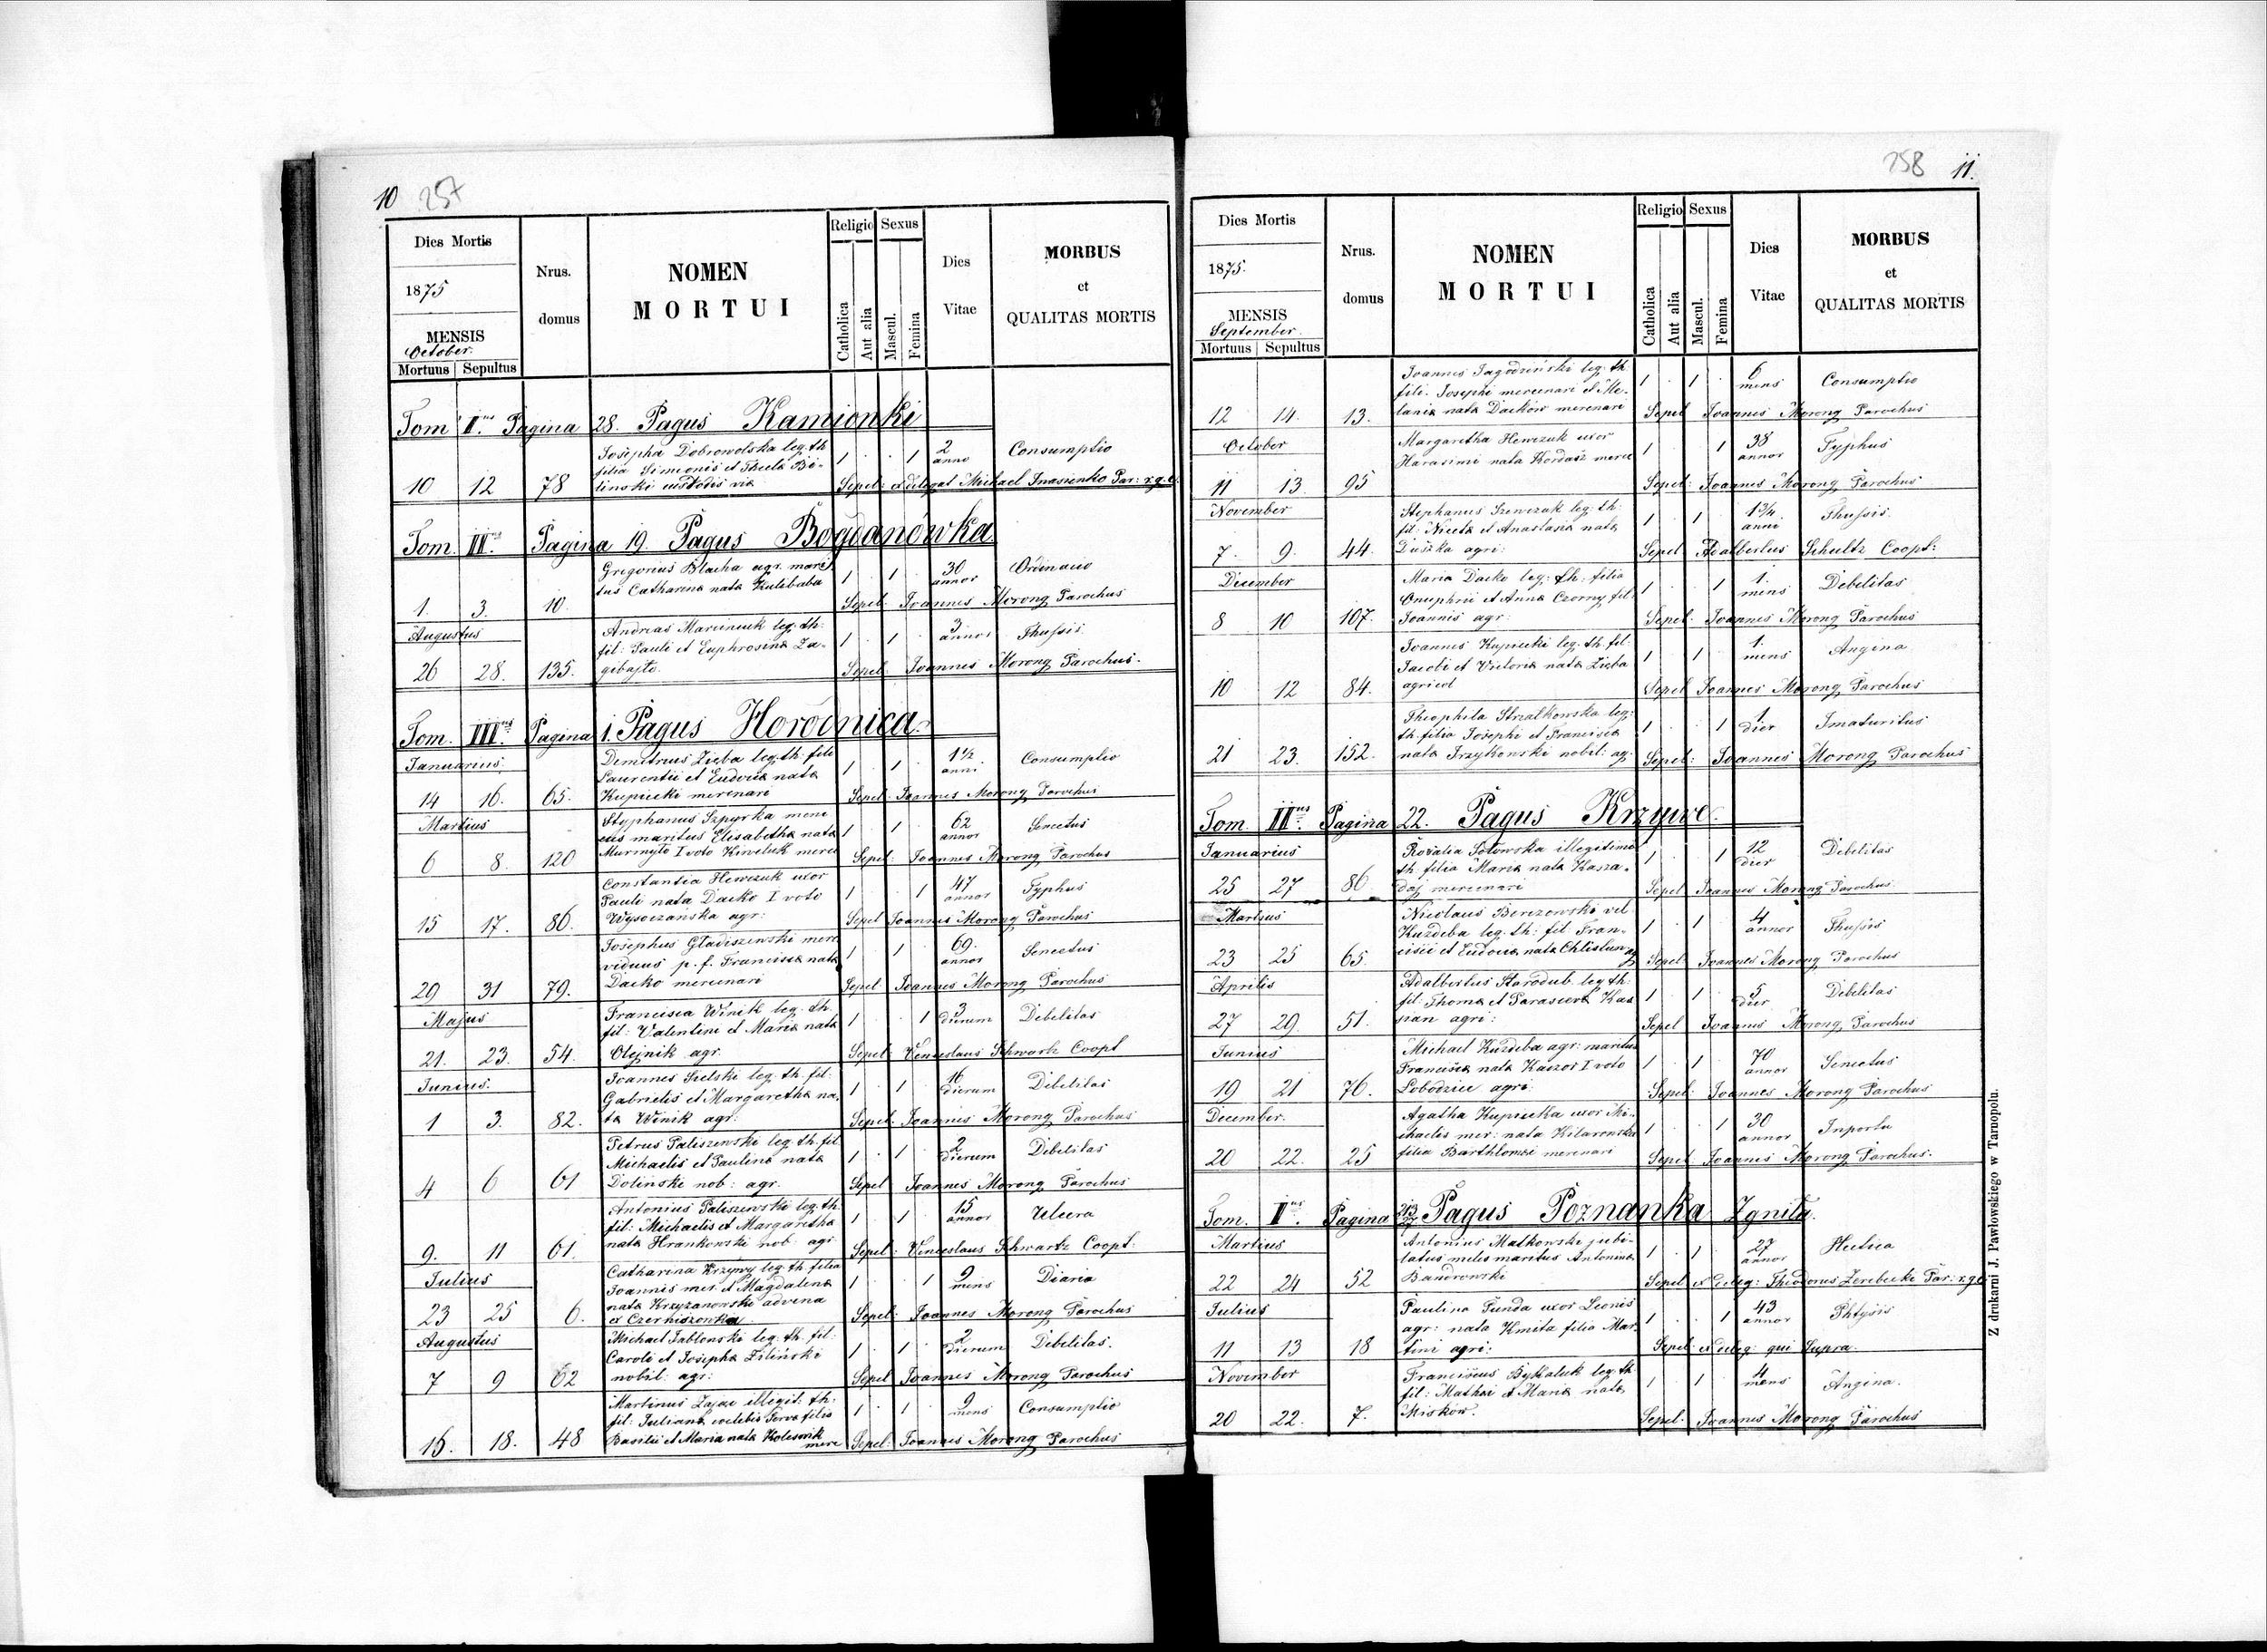 10 257
Dies Mortis
1875
MENSIS
October.
Mortuus Sepultus
Nrus. domus
NOMEN
MORTUI
Religio Sexus
Catholica Aut alia Mascul. Femina
Dies Vitae
MORBUS
et
QUALITAS MORTIS
Tom Ius Pagina 28. Pagus Kamionki
Josepha Dobrowolska leg. th 1 1 2 anno Consumptio
filia Simeonis et Thecla Bi-
10 12 78 linski custodis via Sepel: ex delegat Michael Par: r. g. c.
Tom. IIus Pagina 19. Pagus Bogdanówka
Gregorius Blacha agr. mari 1 1 30 annor Ordinario
tus Catharina nata Kulibaba
1. 3. 10. Sepel. Joannes Morong Parochus
Augustus
Andreas Marciniuk leg. th: 1 1 3 annor Thussis
fil: Pauli et Euphrosina Za-
26 28. 135. gibajto. Sepel: Joannes Morong Parochus.
Tom. IIIus Pagina 1. Pagus Horodnica.
Januarius
Demitrius Zieba leg. th: fili 1 1 1 1/2 anni Consumptio
Laurentii et Eudocia nata
14 16. 65. Kupicki mercenari Sepel: Joannes Morong Parochus
Martius
Styphanus Szpyrka merc 1 1 62 annor Senectus
eus maritus Elisabetha nata
6 8. 120 Murmyto I voto Kiweluk merce Sepel: Joannes Morong Parochus
Constantia Hewczuk uxor 1 1 47 annor Typhus
Pauli nata Dacko I voto
15 17. 86. Wysoczańska agr: Sepel Joannes Morong Parochus
Josephus Gladiszewski merc 1 1 69. annor Senectus
viduus p. f. Francisca nata
29 31 79. Dacko mercenari Sepel: Joannes Morong Parochus
Majus
Francisca Winik leg. th. 1 1 3 dierum Debelitas
fil: Valentini et Maria nata
21. 23. 54. Olejnik agr. Sepel: Venceslaus Schwartz Coopt
Junius.
Joannes Sielski leg. th. fil: 1 1 16 dierum Debelitas
Gabrielis et Margaretha na,
1 3. 82. ta Winik agr: Sepel. Joannes Morong Parochus
Petrus Paliszewski leg. th. fil 1 1 2 dierum Debelitas
Michaelis et Paulina nata
4 6 61 Dolinski nob: agr. Sepel Joannes Morong Parochus
Antonius Paliszewski leg. th. 1 1 15 annor Ulcera
fil: Michaelis et Margaretha
9. 11 61. nata Hrankowski nob: agr Sepel: Venceslaus Schwartz Coopt.
Julius
Catharina Krzywy leg. th. filia 1 1 9 mens Diaria
Joannis mer. et Magdalena
nata Krzyzanowski advena
23 25 6. ex Czerniszowka Sepel: Joannes Morong Parochus
Augustus
Michael Jablonski leg. th. fil: 1 1 2 dierum Debelitas.
Caroli et Josepha Ziliński
7 9 62 nobil: agr: Sepel Joannes Morong Parochus
Martinus Zając illegit: th: 1 1 9 mens Consumptio
fil: Juliana coelebis serva filia
16. 18. 48 Basilii et Maria nata Kolesnik merc Sepel: Joannes Morong Parochus
258 11.
Dies Mortis
1875.
MENSIS
September.
Mortuus Sepultus
Nrus. domus
NOMEN
MORTUI
Religio Sexus
Catholica Aut alia Mascul. Femina
Dies Vitae
MORBUS
et
QUALITAS MORTIS
Joannes Jagodziński leg. th: 1 1 6 mens Consumptio
fili. Josephi mercenari et Me-
12 14. 13. lania nata Dacków mercenari Sepel Joannes Morong Parochus
October
Margaretha Hewczuk uxor 1 1 38 annor Typhus
Harasimi nata Kordasz merce
11 13. 95 Sepel: Joannes Morong Parochus
November
Stephanus Szewczuk leg. th: 1 1 1 3/4 anni Thussis.
fil: Niceta et Anastasia nata
7. 9. 44. Duszka agri: Sepel: Adalbertus Schultz Coopt:
December
Maria Dacko leg: th: filia 1 1 1. mens Debelitas
Onuphrii et Anna Czorny fil:
8 10 107. Joannis agr: Sepel: Joannes Morong Parochus
Joannes Kupicki leg. th. fil: 1 1 1. mens Angina
Jacobi et Victoria nata Zieba
10 12 84. agricol Sepel Joannes Morong Parochus
Theophila Strzalkowska leg: 1 1 1 dier Imaturitus
th. filia Josephi et Francisca
21 23. 152. nata Irzykowski nobil: ag: Sepel: Joannes Morong Parochus
Tom. IIus Pagina 22. Pagus Krzywe.
Januarius
Rozalia Sotowska illegitima 1 1 12 dier Debelitas
th. filia Maria nata Kasza-
25 27 86. daj mercenari Sepel Joannes Morong Parochus
Martius
Nicolaus Berezowski vel 1 1 4 annor Thussis
Kuzdeba leg. th: fil: Fran-
23 25 65. cisii et Eudocia nata Chlistun ag Sepel: Joannes Morong Parochus
Aprilis
Adalbertus Starodub leg. th: 1 1 5 dier Debelitas
fil: Thoma et Parasceva Kas
27 29. 51. pan agri: Sepel Joannes Morong Parochus
Junius
Michael Kuzdeba agr: maritus 1 1 70 annor Senectus
Francisca nata Kaczor I voto
19 21 76. Lobodzice agri. Sepel: Joannes Morong Parochus
December.
Agatha Kupicka uxor Mi- 1 1 30 annor Inporta
chaelis mer: nata Kilarowska
20 22. 25 filia Barthlomei mercenari Sepel: Joannes Morong Parochus.
Tom. Ius Pagina Pagus Poznanka Zgniła.
Martius
Antonius Malkowski jubi- 1 1 27 annor Hectica
latus miles maritus Antonina
22 24 52 Bandrowski Sepel ex deleg: Theodorus Zerebecki Par: r. g. c
Julius
Paulina Funda uxor Leonis 1 1 43 annor Phtysis
agr: nata Kmita filia Mar-
11 13 18 tini agri: Sepel ex deleg: qui Supra.
November
Franciscus Bykaluk leg. th 1 1 4 mens Angina.
fil: Mathei et Maria nata
20 22. 7. Misków. Sepel. Joannes Morong Parochus
Z drukarni J. Pawłowskiego w Tarnopolu.